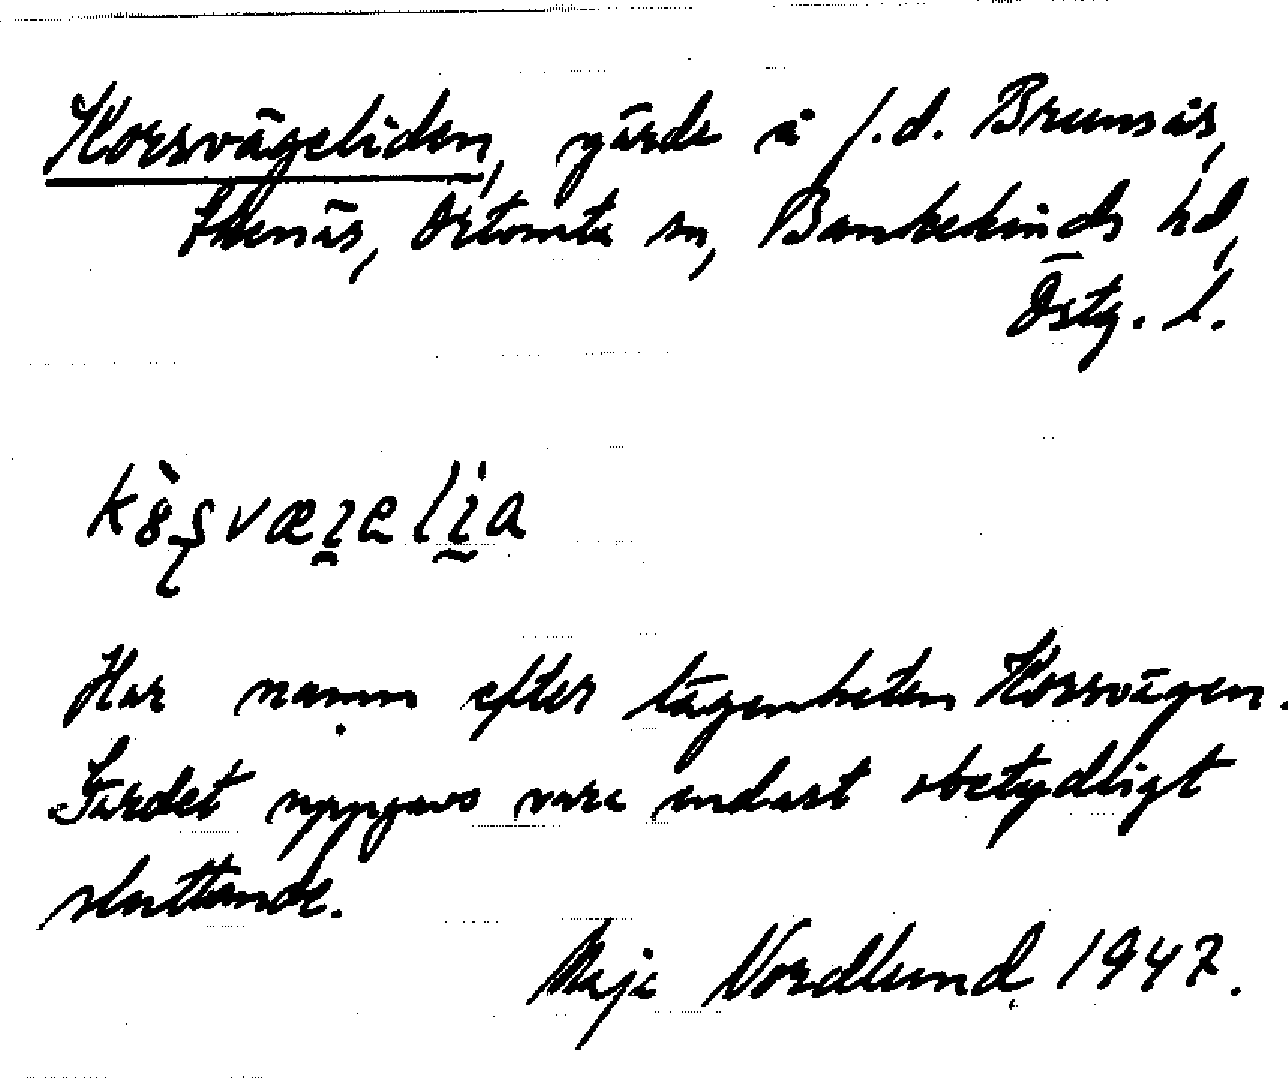 Korsvägeliden, gärde å f.d. Brunsås,
Stenäs, Örtomta sn, Bankekinds hd,
Östg. l.
Har namn efter lägenheten Korsvägen.
Gärdet uppgavs vara endast obetydligt
sluttande.
Maja Nordlund 1947.